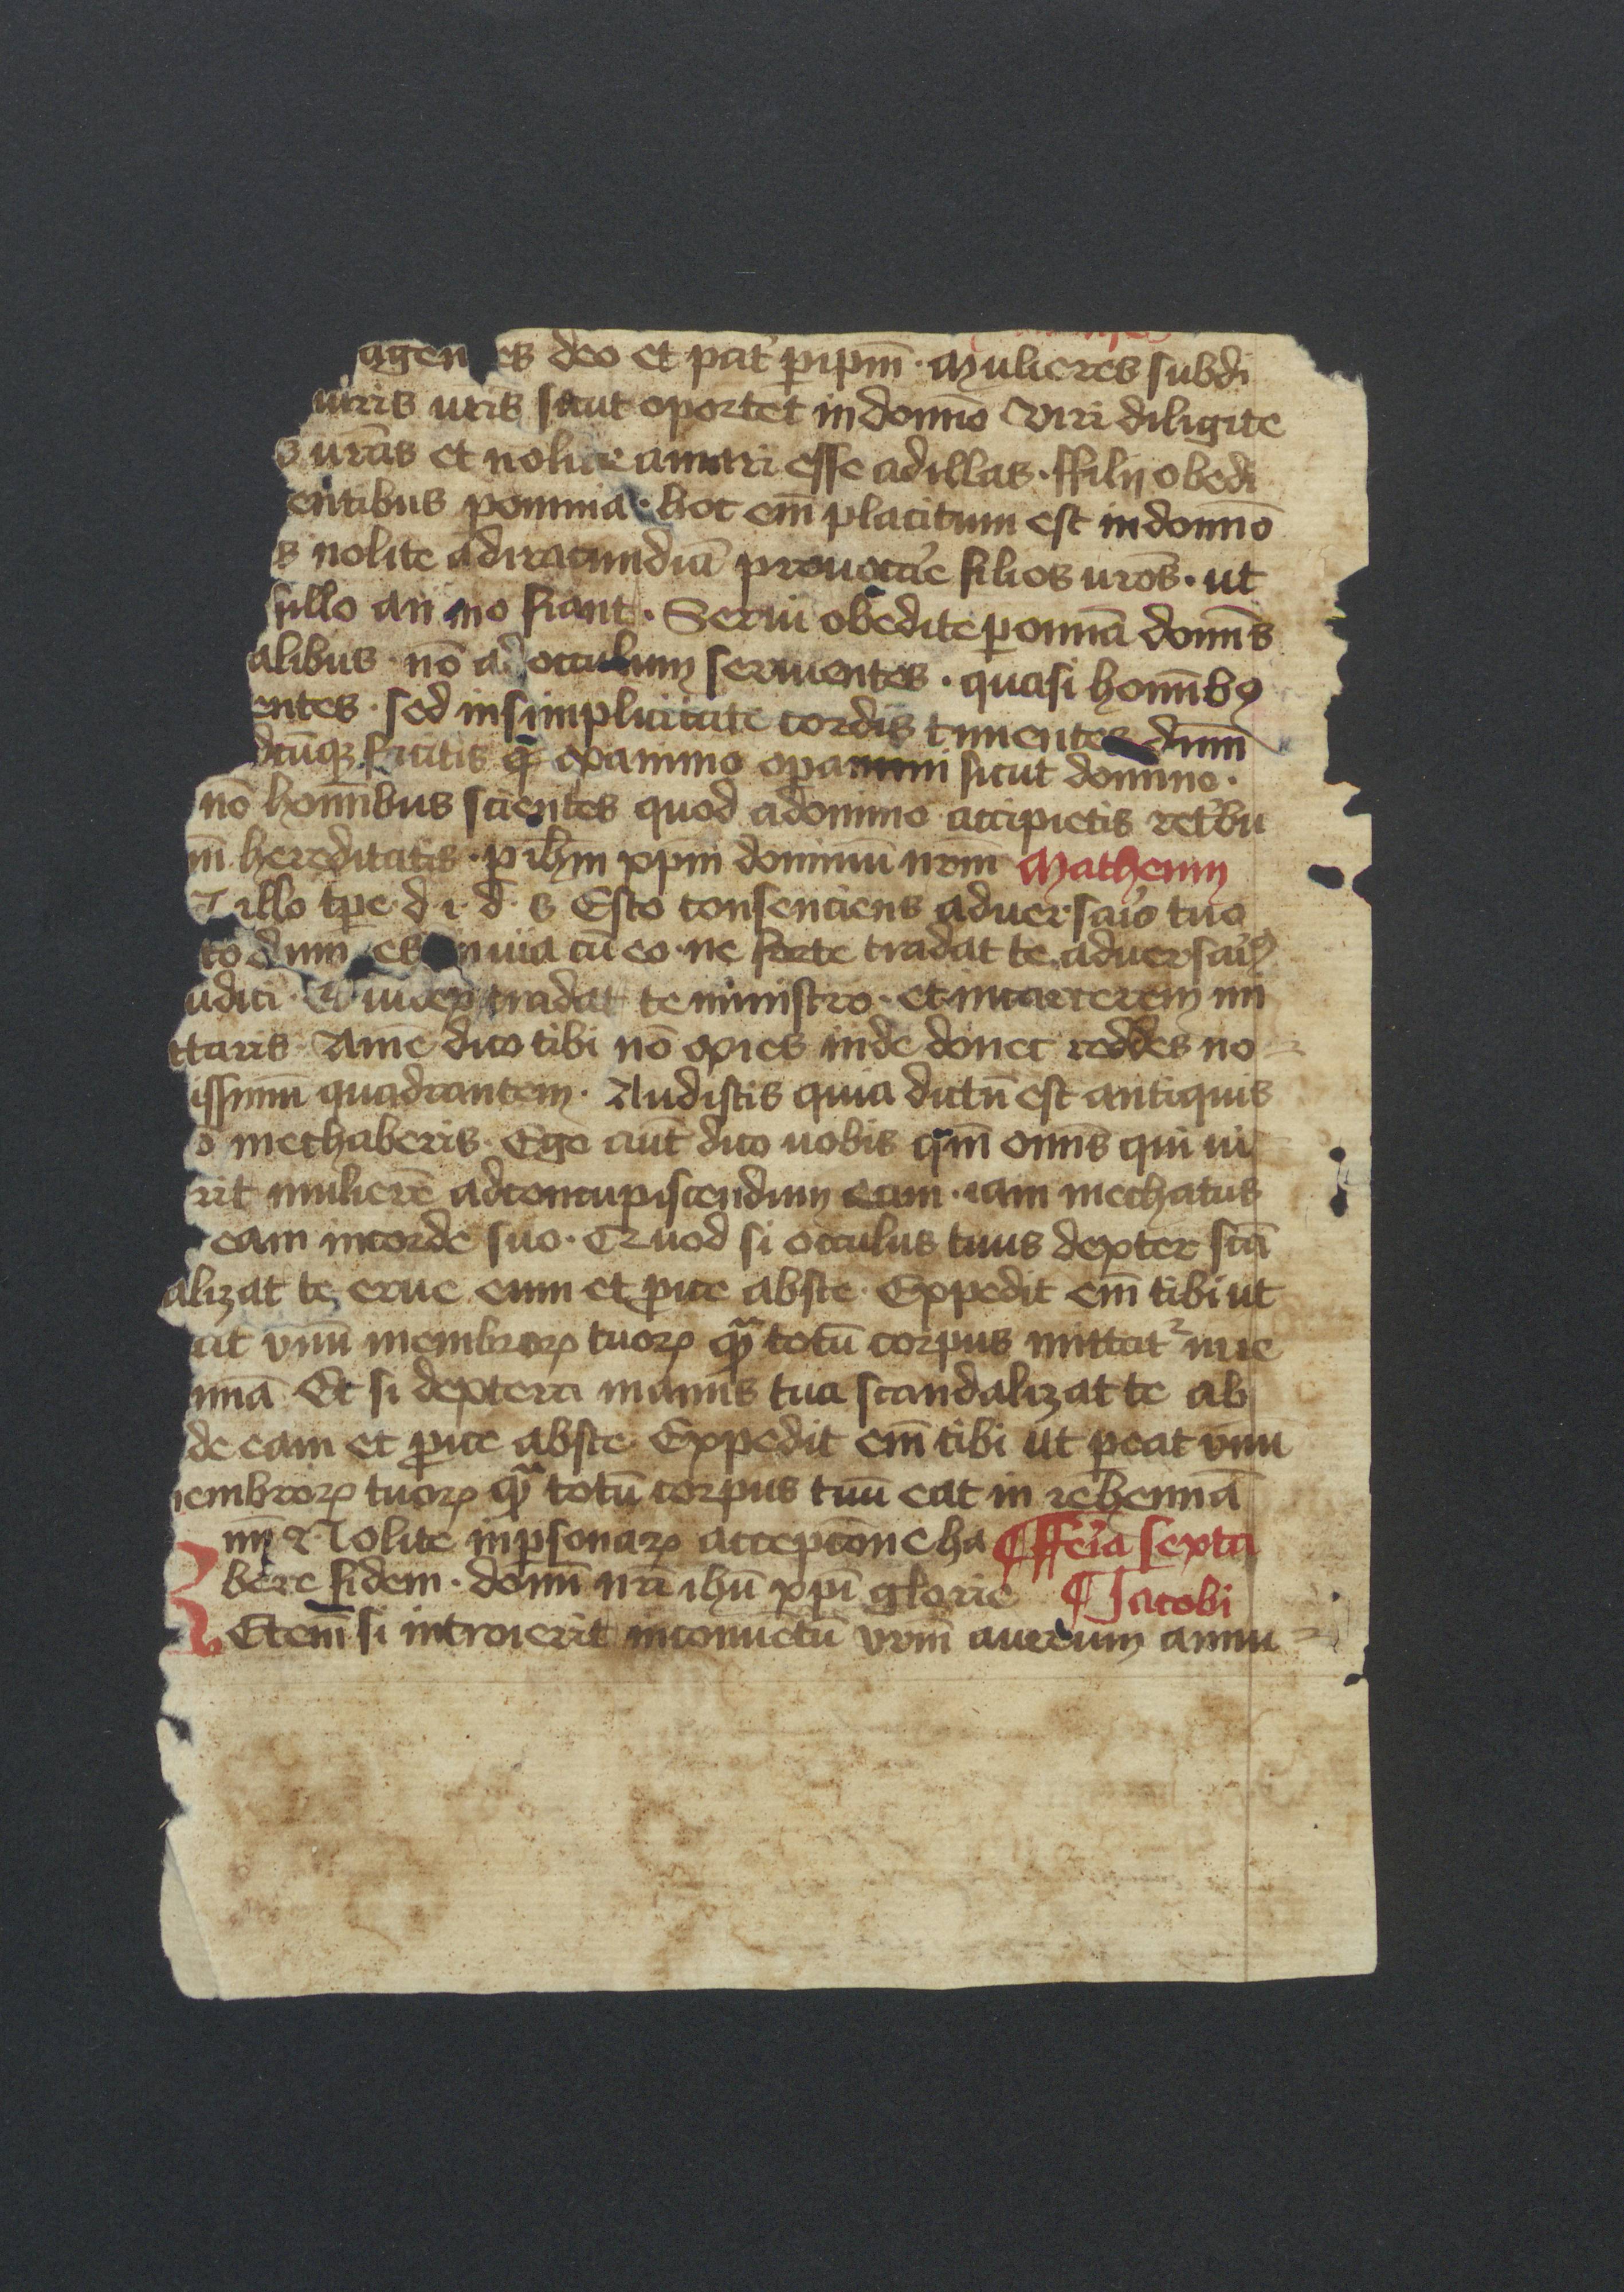 agen es deo et pat̉ ꝑ ip̄m · Mulieres subdi
uiris ur̄is sicut oportet in domīo Viri diligite
s ur̄as et nolite amari esse ad illas · ffilij obedi
entibus ꝑ omnia · hoc em̄ placitum est in domīo
s nolite ad iracundiā prouocar̉e filios ur̄os · ut
sillo animo fiant · Serui obedite ꝑ omnīa domīs
alibus · nō ad occulum seruientes · quasi homībꝯ
entes · sed in simplicitate cordis timentes dnm̄
dcūqꝫ facitis ex animo opamini sicut domino ·
nō homībus scientes quod a domino accipietis ret̉bu
m̄ hereditatis · ꝑ ih̄m xp̄m dominū nr̄m Matheum
illo tp̄e d · i · d · s Esto consenciens aduersar̉io tuo
to dum es in uia cū eo · ne forte tradat te aduersar̉iꝯ
udici · Et iudex tradat te ministro · et in carcerem mi
ttaris · Amē dico tibi nō exies inde donec reddes no
issimū quadrantem · Audistis quia dictū est antiquis
o mechaberis · Ego aut̄ dico uobis qm̄ omīs qui ui
rit mulierē ad concupiscendum eam · iam mechatus
eam in corde suo · Quod si occulus tuus dexter scā
alizat te erue eum et ꝓice abs te · Expedit em̄ tibi ut
at vnū membroꝝ tuoꝝ qꝫ totū corpus mittat᷑ in ie
nnā Et si dextera manus tua scandalizat te ab
de eam et ꝓice abs te Expedit em̄ tibi ut ꝑeat vnū
embroꝝ tuoꝝ qꝫ totū corpus tuū eat in iehennā
Nolite in ꝑsonaꝝ accepcōne ha ¶ ffer̉ia sexta
bere fidem · domī nr̄i ihū xp̄i glorie ¶ Jacobi
Etem̄ si introierit in conuētū vr̄m aureum annu